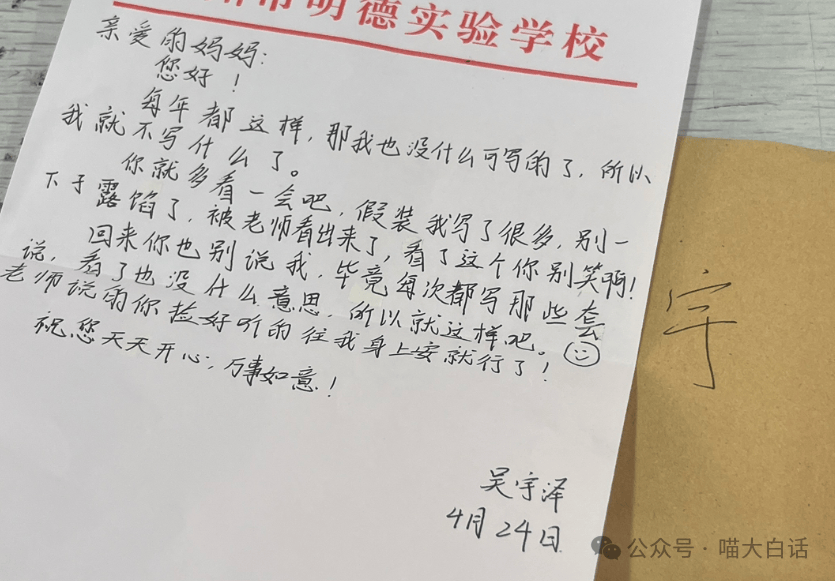 市明德实验学校
亲爱的妈妈:
您好!
每年都这样,那我也没什么可写的了,所以
我就不写什么了。
你就多看一会吧,假装我写了很多,别一
下子露馅了,被老师看出来了,看了这个你别笑啊!
回来你也别说我,毕竟每次都写那些套
说,看了也没什么意思,所以就这样吧。
老师说的你捡好听的往我身上安就行了!
祝您天天开心,万事如意!
吴宇泽
4月24日
宇
公众号·喵大白话